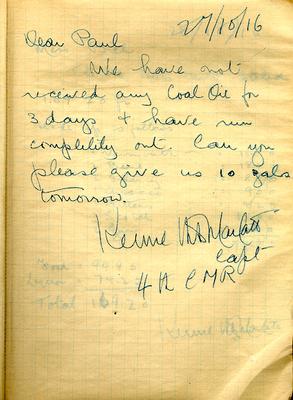 27/10/16
Dear Paul
We have not
received any Coal Oil for
3 days & have run
complitily out. Can you
please give us 10 gals
tomorrow.
Capt
4th CMR
Total